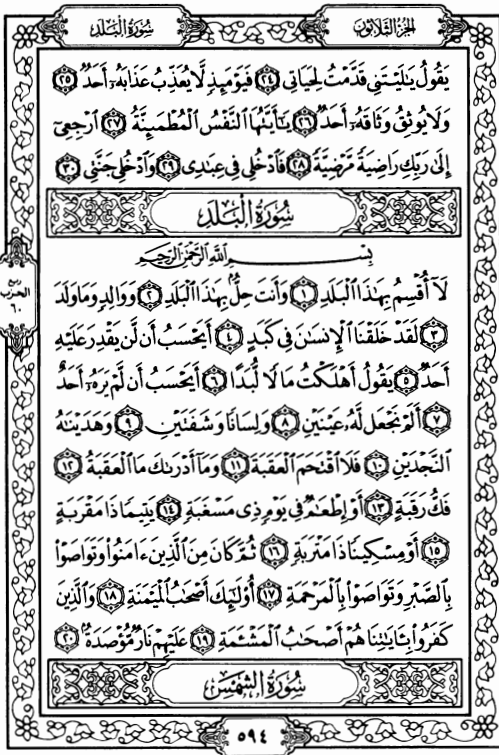 سُورَةُ الْبَلَدِ
الجُزْءُ الثَّلَاثُونَ
يَقُولُ يَٰلَيْتَنِي قَدَّمْتُ لِحَيَاتِي ٢٤ فَيَوْمَئِذٍ لَّا يُعَذِّبُ عَذَابَهُۥٓ أَحَدٌ ٢٥
وَلَا يُوثِقُ وَثَاقَهُۥٓ أَحَدٌ ٢٦ يَٰٓأَيَّتُهَا ٱلنَّفْسُ ٱلْمُطْمَئِنَّةُ ٢٧ ٱرْجِعِىٓ
إِلَىٰ رَبِّكِ رَاضِيَةً مَّرْضِيَّةً ٢٨ فَٱدْخُلِى فِى عِبَٰدِى ٢٩ وَٱدْخُلِى جَنَّتِى ٣٠
سُورَةُ الْبَلَدِ
بِسْمِ ٱللَّهِ ٱلرَّحْمَٰنِ ٱلرَّحِيمِ
لَآ أُقْسِمُ بِهَٰذَا ٱلْبَلَدِ ١ وَأَنتَ حِلٌّۢ بِهَٰذَا ٱلْبَلَدِ ٢ وَوَالِدٍ وَمَا وَلَدَ
٣ لَقَدْ خَلَقْنَا ٱلْإِنسَٰنَ فِى كَبَدٍ ٤ أَيَحْسَبُ أَن لَّن يَقْدِرَ عَلَيْهِ
أَحَدٌ ٥ يَقُولُ أَهْلَكْتُ مَالًا لُّبَدًا ٦ أَيَحْسَبُ أَن لَّمْ يَرَهُۥٓ أَحَدٌ
٧ أَلَمْ نَجْعَل لَّهُۥ عَيْنَيْنِ ٨ وَلِسَانًا وَشَفَتَيْنِ ٩ وَهَدَيْنَٰهُ
ٱلنَّجْدَيْنِ ١٠ فَلَا ٱقْتَحَمَ ٱلْعَقَبَةَ ١١ وَمَآ أَدْرَىٰكَ مَا ٱلْعَقَبَةُ ١٢
فَكُّ رَقَبَةٍ ١٣ أَوْ إِطْعَٰمٌ فِى يَوْمٍ ذِى مَسْغَبَةٍ ١٤ يَتِيمًا ذَا مَقْرَبَةٍ
١٥ أَوْ مِسْكِينًا ذَا مَتْرَبَةٍ ١٦ ثُمَّ كَانَ مِنَ ٱلَّذِينَ ءَامَنُوا۟ وَتَوَاصَوْا۟
بِٱلصَّبْرِ وَتَوَاصَوْا۟ بِٱلْمَرْحَمَةِ ١٧ أُو۟لَٰٓئِكَ أَصْحَٰبُ ٱلْمَيْمَنَةِ ١٨ وَٱلَّذِينَ
كَفَرُوا۟ بِـَٔايَٰتِنَا هُمْ أَصْحَٰبُ ٱلْمَشْـَٔمَةِ ١٩ عَلَيْهِمْ نَارٌ مُّؤْصَدَةٌۢ ٢٠
سُورَةُ الشَّمْسِ
ربع
الحزب
٦٠
٥٩٤